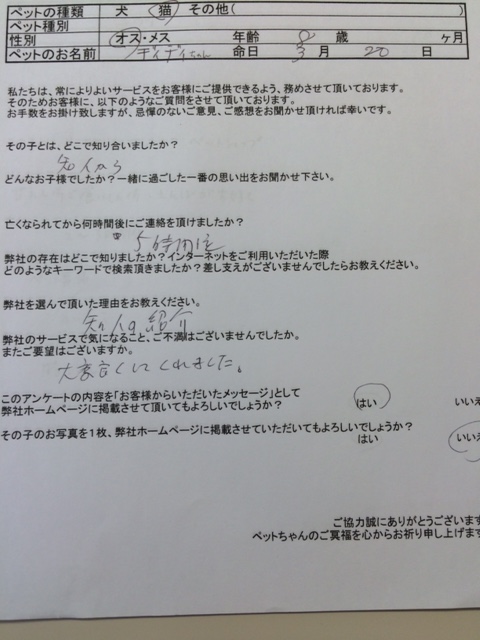 ペットの種類 犬 猫 その他( )
ペット種別
性別 オス・メス 年齢 8 歳 ヶ月
ペットのお名前 ディディちゃん 命日 3 月 20 日
私たちは、常によりよいサービスをお客様にご提供できるよう、務めさせて頂いております。
そのためお客様に、以下のようなご質問をさせて頂いております。
お手数をお掛け致しますが、忌憚のないご意見、ご感想をお聞かせ頂ければ幸いです。
その子とは、どこで知り合いましたか？
知人から
どんなお子様でしたか？一緒に過ごした一番の思い出をお聞かせ下さい。
亡くなられてから何時間後にご連絡を頂けましたか？
5時間位
弊社の存在はどこで知りましたか？インターネットをご利用いただいた際
どのようなキーワードで検索頂きましたか？差し支えがございませんでしたらお教えください。
弊社を選んで頂いた理由をお教えください。
知人の紹介
弊社のサービスで気になること、ご不満はございませんでしたか。
またご要望はございますか。
大変良くしてくれました。
このアンケートの内容を「お客様からいただいたメッセージ」として
弊社ホームページに掲載させて頂いてもよろしいでしょうか？ はい いいえ
その子のお写真を1枚、弊社ホームページに掲載させていただいてもよろしいでしょうか？
はい いいえ
ご協力誠にありがとうございます
ペットちゃんのご冥福を心からお祈り申し上げます